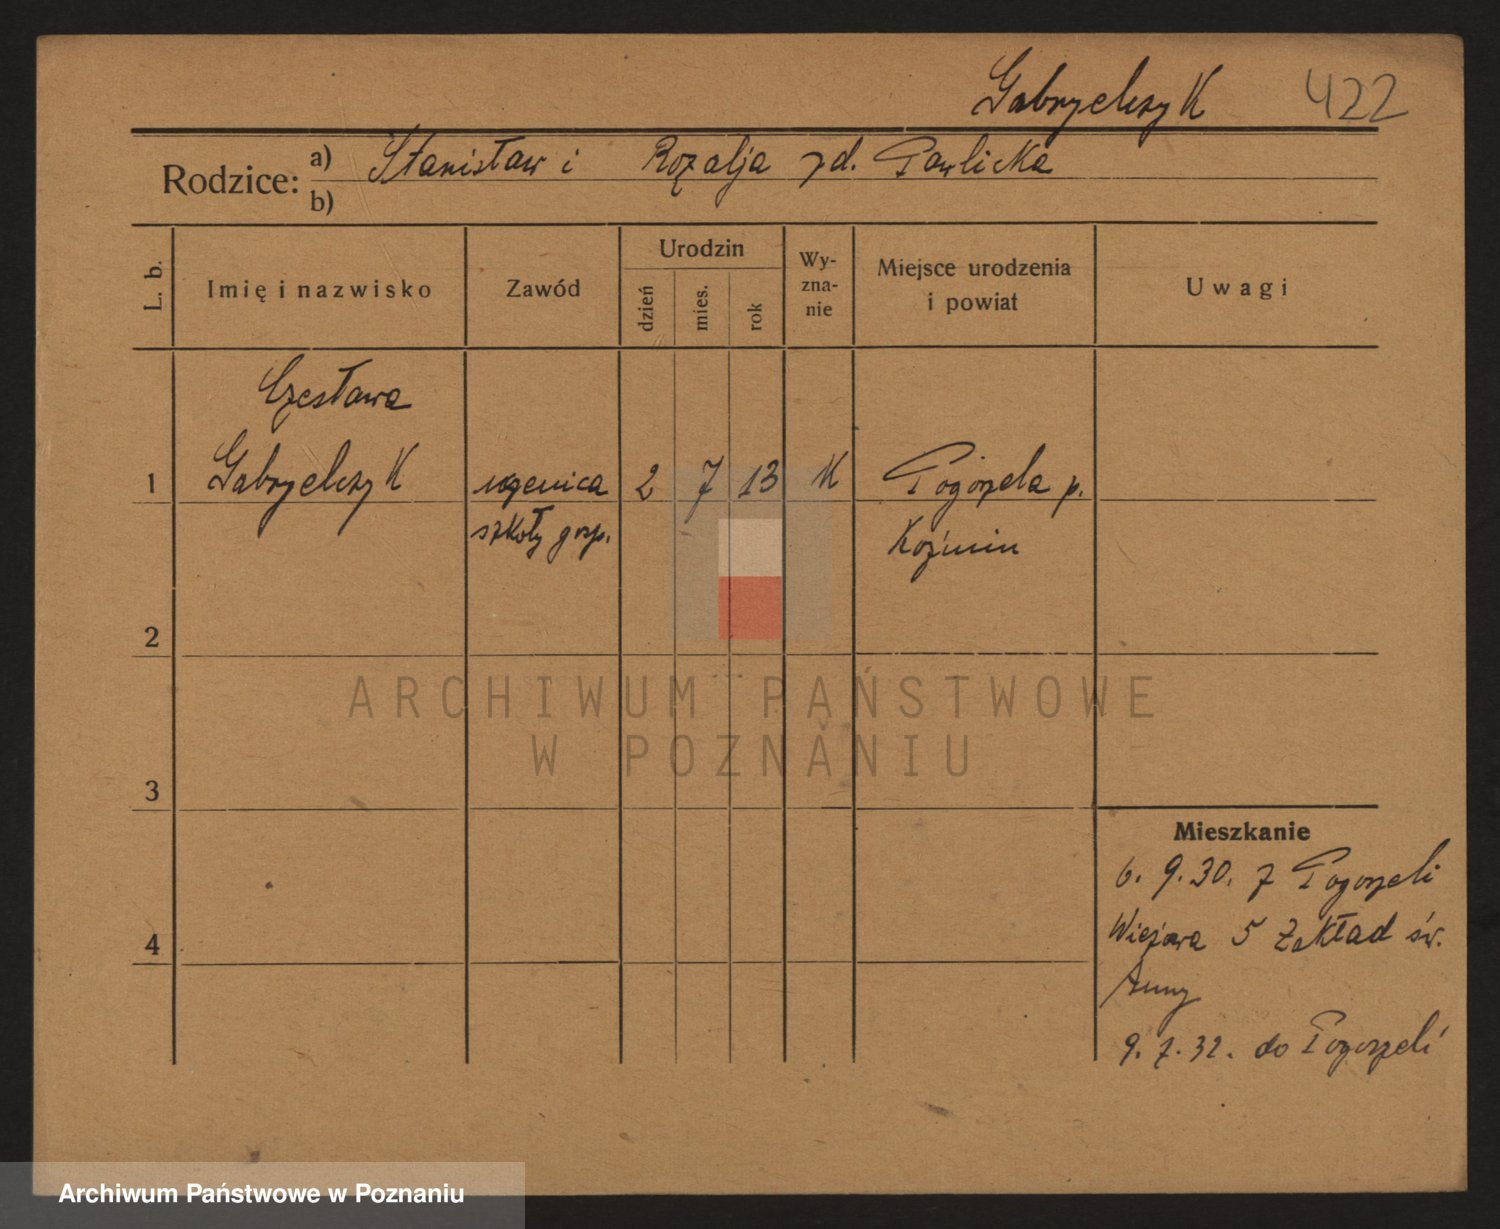 Gabryelczyk 422
Rodzice: a) Stanisław i Rozalja zd. Pawlicka
b)
L. b. Imię i nazwisko Zawód Urodzin dzień mies. rok Wy-zna-nie Miejsce urodzenia i powiat Uwagi
Czesława
1 Gabryelczyk uczenica 2 7 13 K Pogorzela p.
szkoły gosp. Koźmin
2
ARCHIWUM PAŃSTWOWE
W POZNANIU
3
Mieszkanie
6. 9. 30. z Pogorzeli
4 Wieżowa 5 Zakład św.
Anny
9. 7. 32. do Pogorzeli
Archiwum Państwowe w Poznaniu